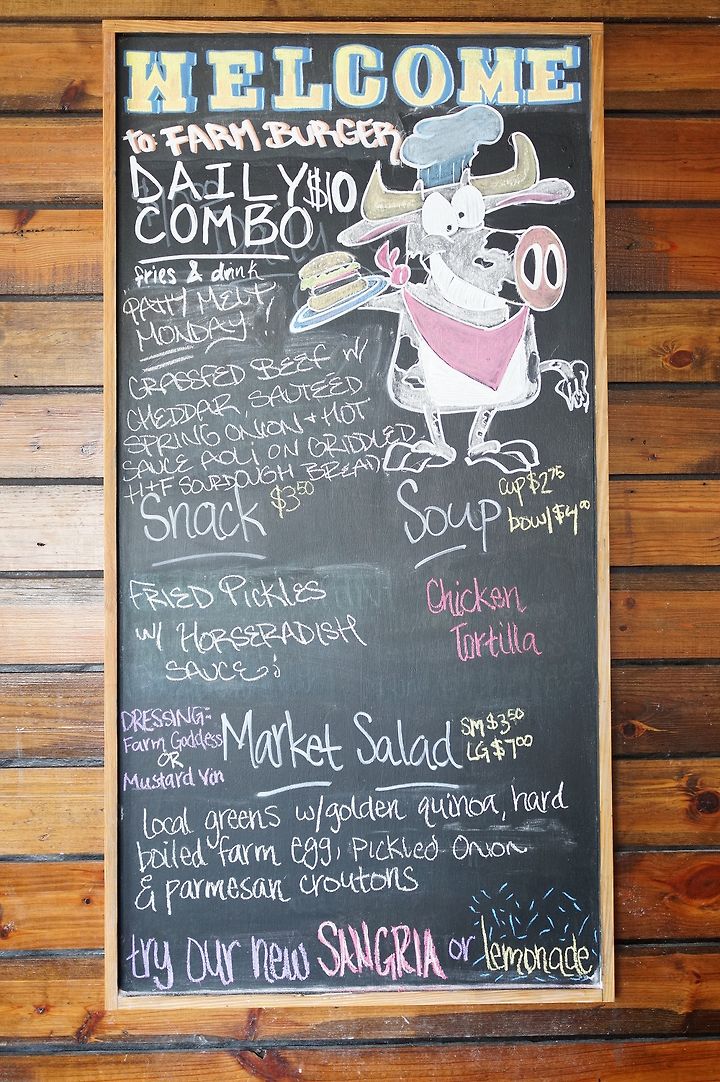 WELCOME
to FARM BURGER
DAILY $10
COMBO
fries & drink
PATTY MELT
MONDAY!
GRASSFED BEEF W/
CHEDDAR, SAUTEED
SPRING ONION + HOT
SAUCE AOLI ON GRIDDLED
H+F SOURDOUGH BREAD
Snack $3.50
FRIED PICKLES
W/ HORSERADISH
SAUCE!
Soup
cup $2.75
bowl $4.00
Chicken
Tortilla
DRESSING:
Farm Goddess
OR
Mustard Vin
Market Salad
SM $3.50
LG $7.00
local greens w/golden quinoa, hard
boiled farm egg, Pickled Onion
& parmesan croutons
try our new SANGRIA or lemonade